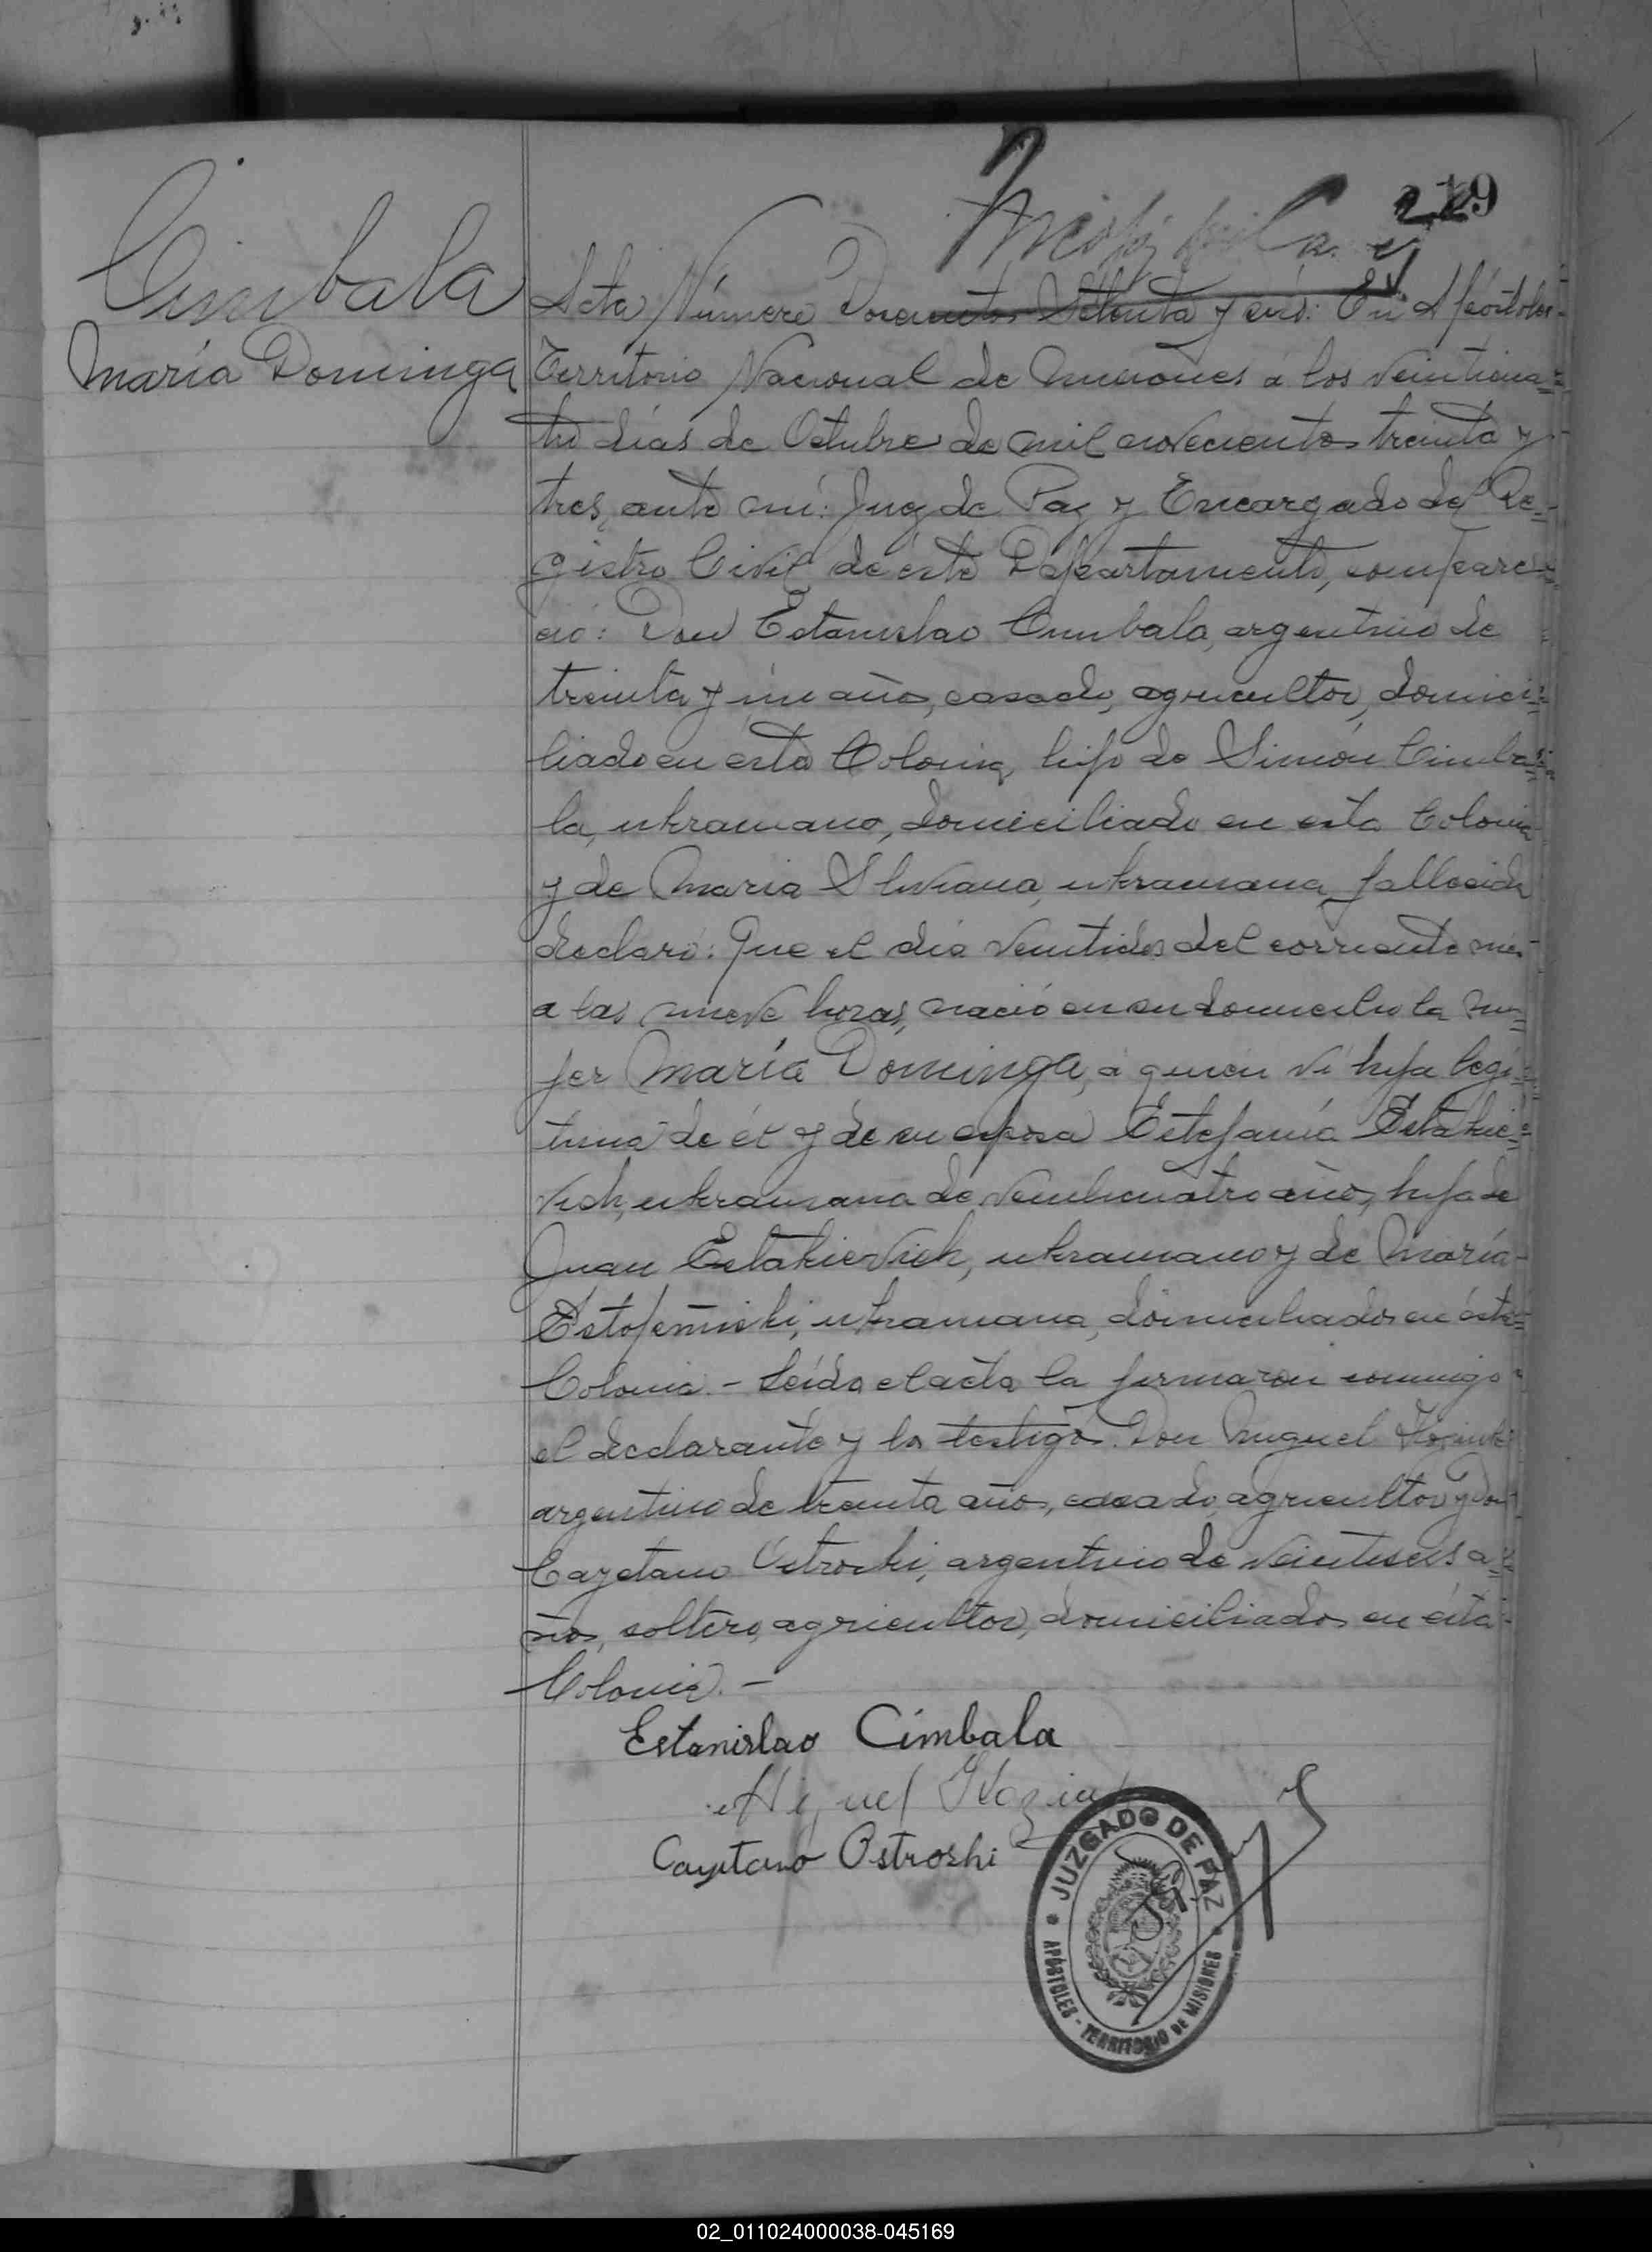 219
Cimbala
María Dominga
Acta Número Doscientos Setenta y seis: En Apóstoles
Territorio Nacional de Misiones á los veinticua=
tro días de Octubre de mil novecientos treinta y
tres, ante mi: Juez de Paz y Encargado del Re=
gistro Civil de éste Departamento, compare=
ció: Don Estanislao Cimbala, argentino de
treinta y un años, casado, agricultor, domici=
liado en esta Colonia, hijo de Simón Cimba=
la, ukraniano, domiciliado en esta Colonia
y de Maria ukraniana, fallecida
declaró: Que el día veintidós del corriente mes
a las nueve horas, nació en su domicilio la mu=
jer María Dominga, a quien ví hija legi=
tima de él y de su esposa Estefanía Estakie=
vich, ukraniana de veinticuatro años, hija de
Juan Estakievich, ukraniano y de María
ukraniana, domiciliados en ésta
Colonia.- Leída el acta la firmaron conmigo
el declarante y los testigos Don Miguel
argentino de treinta años, casado, agricultor y Don
Cayetano Ostroski, argentino de veintiseis a=
ños, soltero, agricultor, domiciliados en ésta
Colonia.-
Estanislao Cimbala
Miguel
Cayetano Ostroski
JUZGADO DE PAZ
APÓSTOLES - TERRITORIO DE MISIONES
02_011024000038-045169